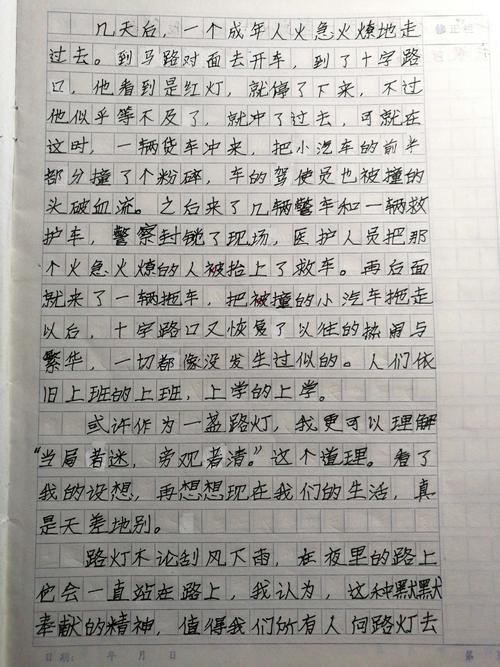 几天后，一个成年人火急火燎地走
过去。到马路对面去开车，到了十字路
口，他看到是红灯，就停了下来，不过
他似乎等不及了，就冲了过去，可就在
这时，一辆货车冲来，把小汽车的前半
部分撞了个粉碎，车的驾使员也被撞的
头破血流。之后来了几辆警车和一辆救
护车，警察封锁了现场，医护人员把那
个火急火燎的人被抬上了救车。再后面
就来了一辆拖车，把被撞的小汽车拖走
以后，十字路口又恢复了以往的热闹与
繁华，一切都像没发生过似的。人们依
旧上班的上班，上学的上学。
或许作为一盏路灯，我更可以理解
“当局者迷，旁观者清。”这个道理。看了
我的设想，再想想现在我们的生活，真
是天差地别。
路灯不论刮风下雨，在夜里的路上
它会一直站在路上，我认为，这种默默
奉献的精神，值得我们所有人向路灯去
日期： 年 月 日 第
修正栏